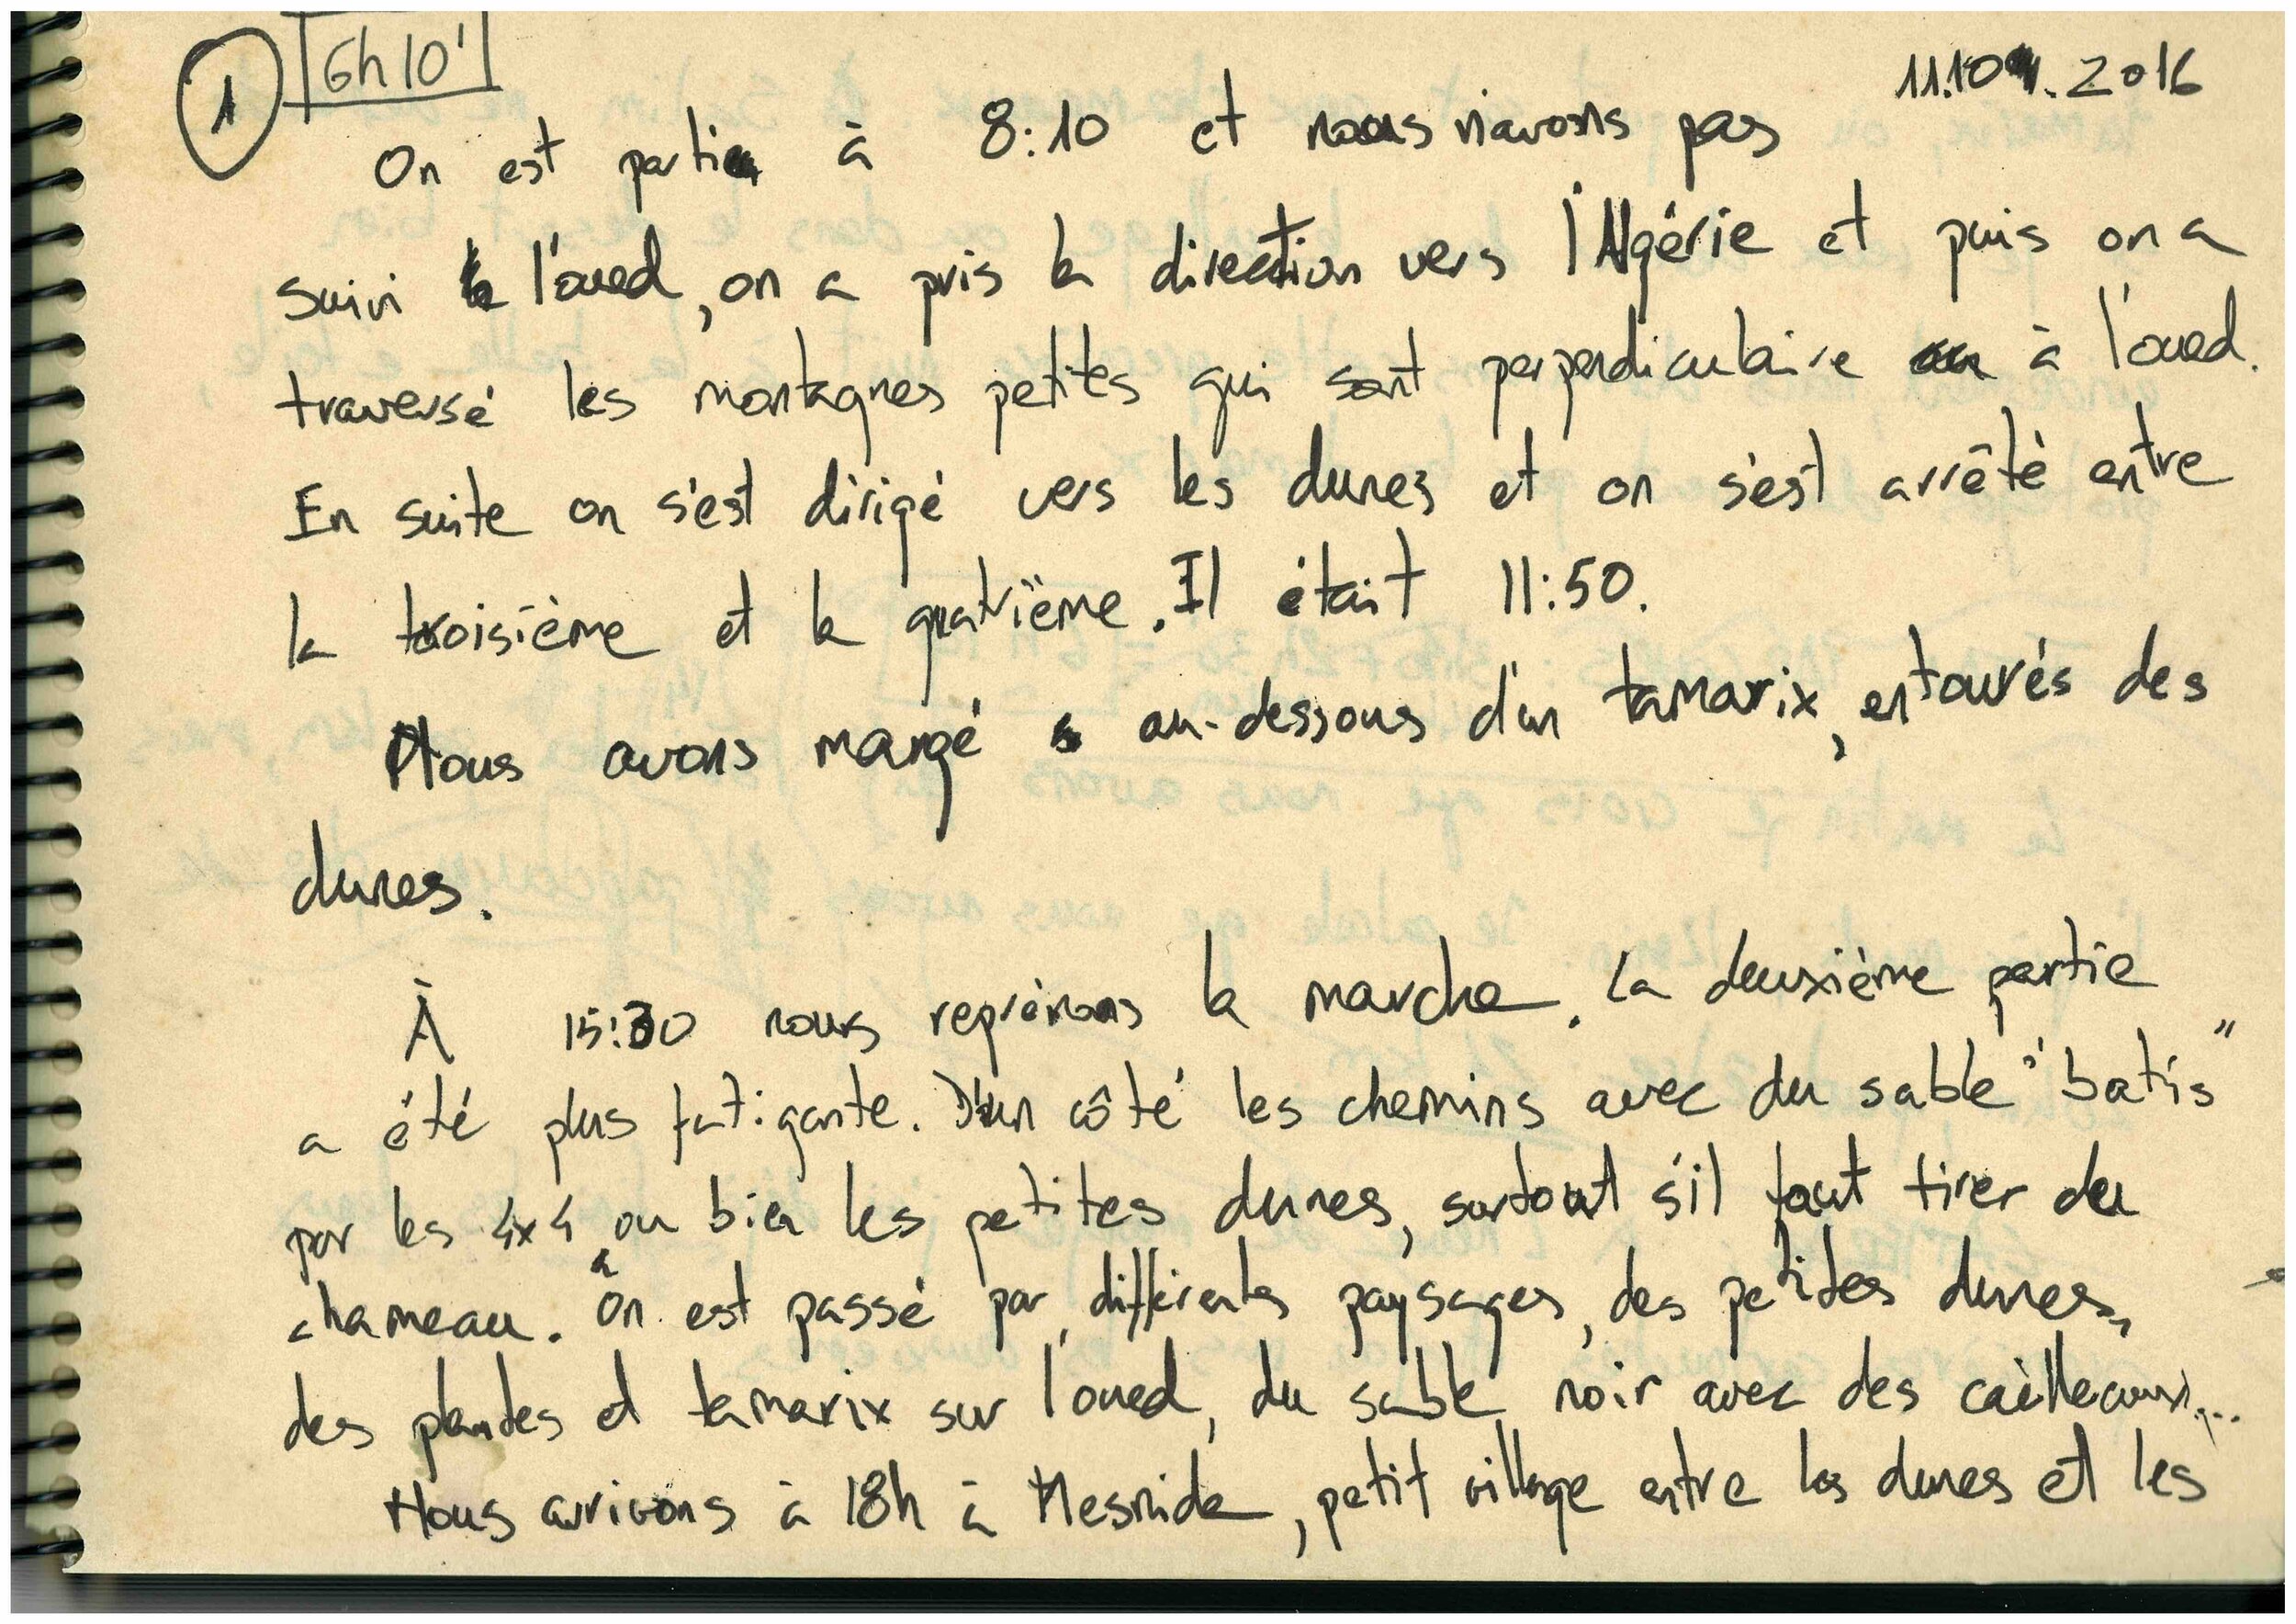 1 6h 10' 11.10.2016
On est parti à 8:10 et nous n'avons pas
suivi l'oued, on a pris la direction vers l'Algérie et puis on a
traversé les montagnes petites qui sont perpendiculaire à l'oued.
En suite on s'est dirigé vers les dunes et on s'est arrêté entre
la troisième et la quatrième. Il était 11:50.
Nous avons mangé au-dessous d'un tamarix, entourés des
dunes.
À 15:30 nous reprénons la marche. La deuxième partie
a été plus fatigante. D'un côté les chemins avec du sable "batis"
par les 4x4 ou bien les petites dunes, surtout s'il faut tirer du
chameau. On est passé par différents paysages, des petites dunes,
des plantes et tamarix sur l'oued, du sable noir avec des caèlleaux...
Nous arrivons à 18h à Mesnida, petit village entre les dunes et les